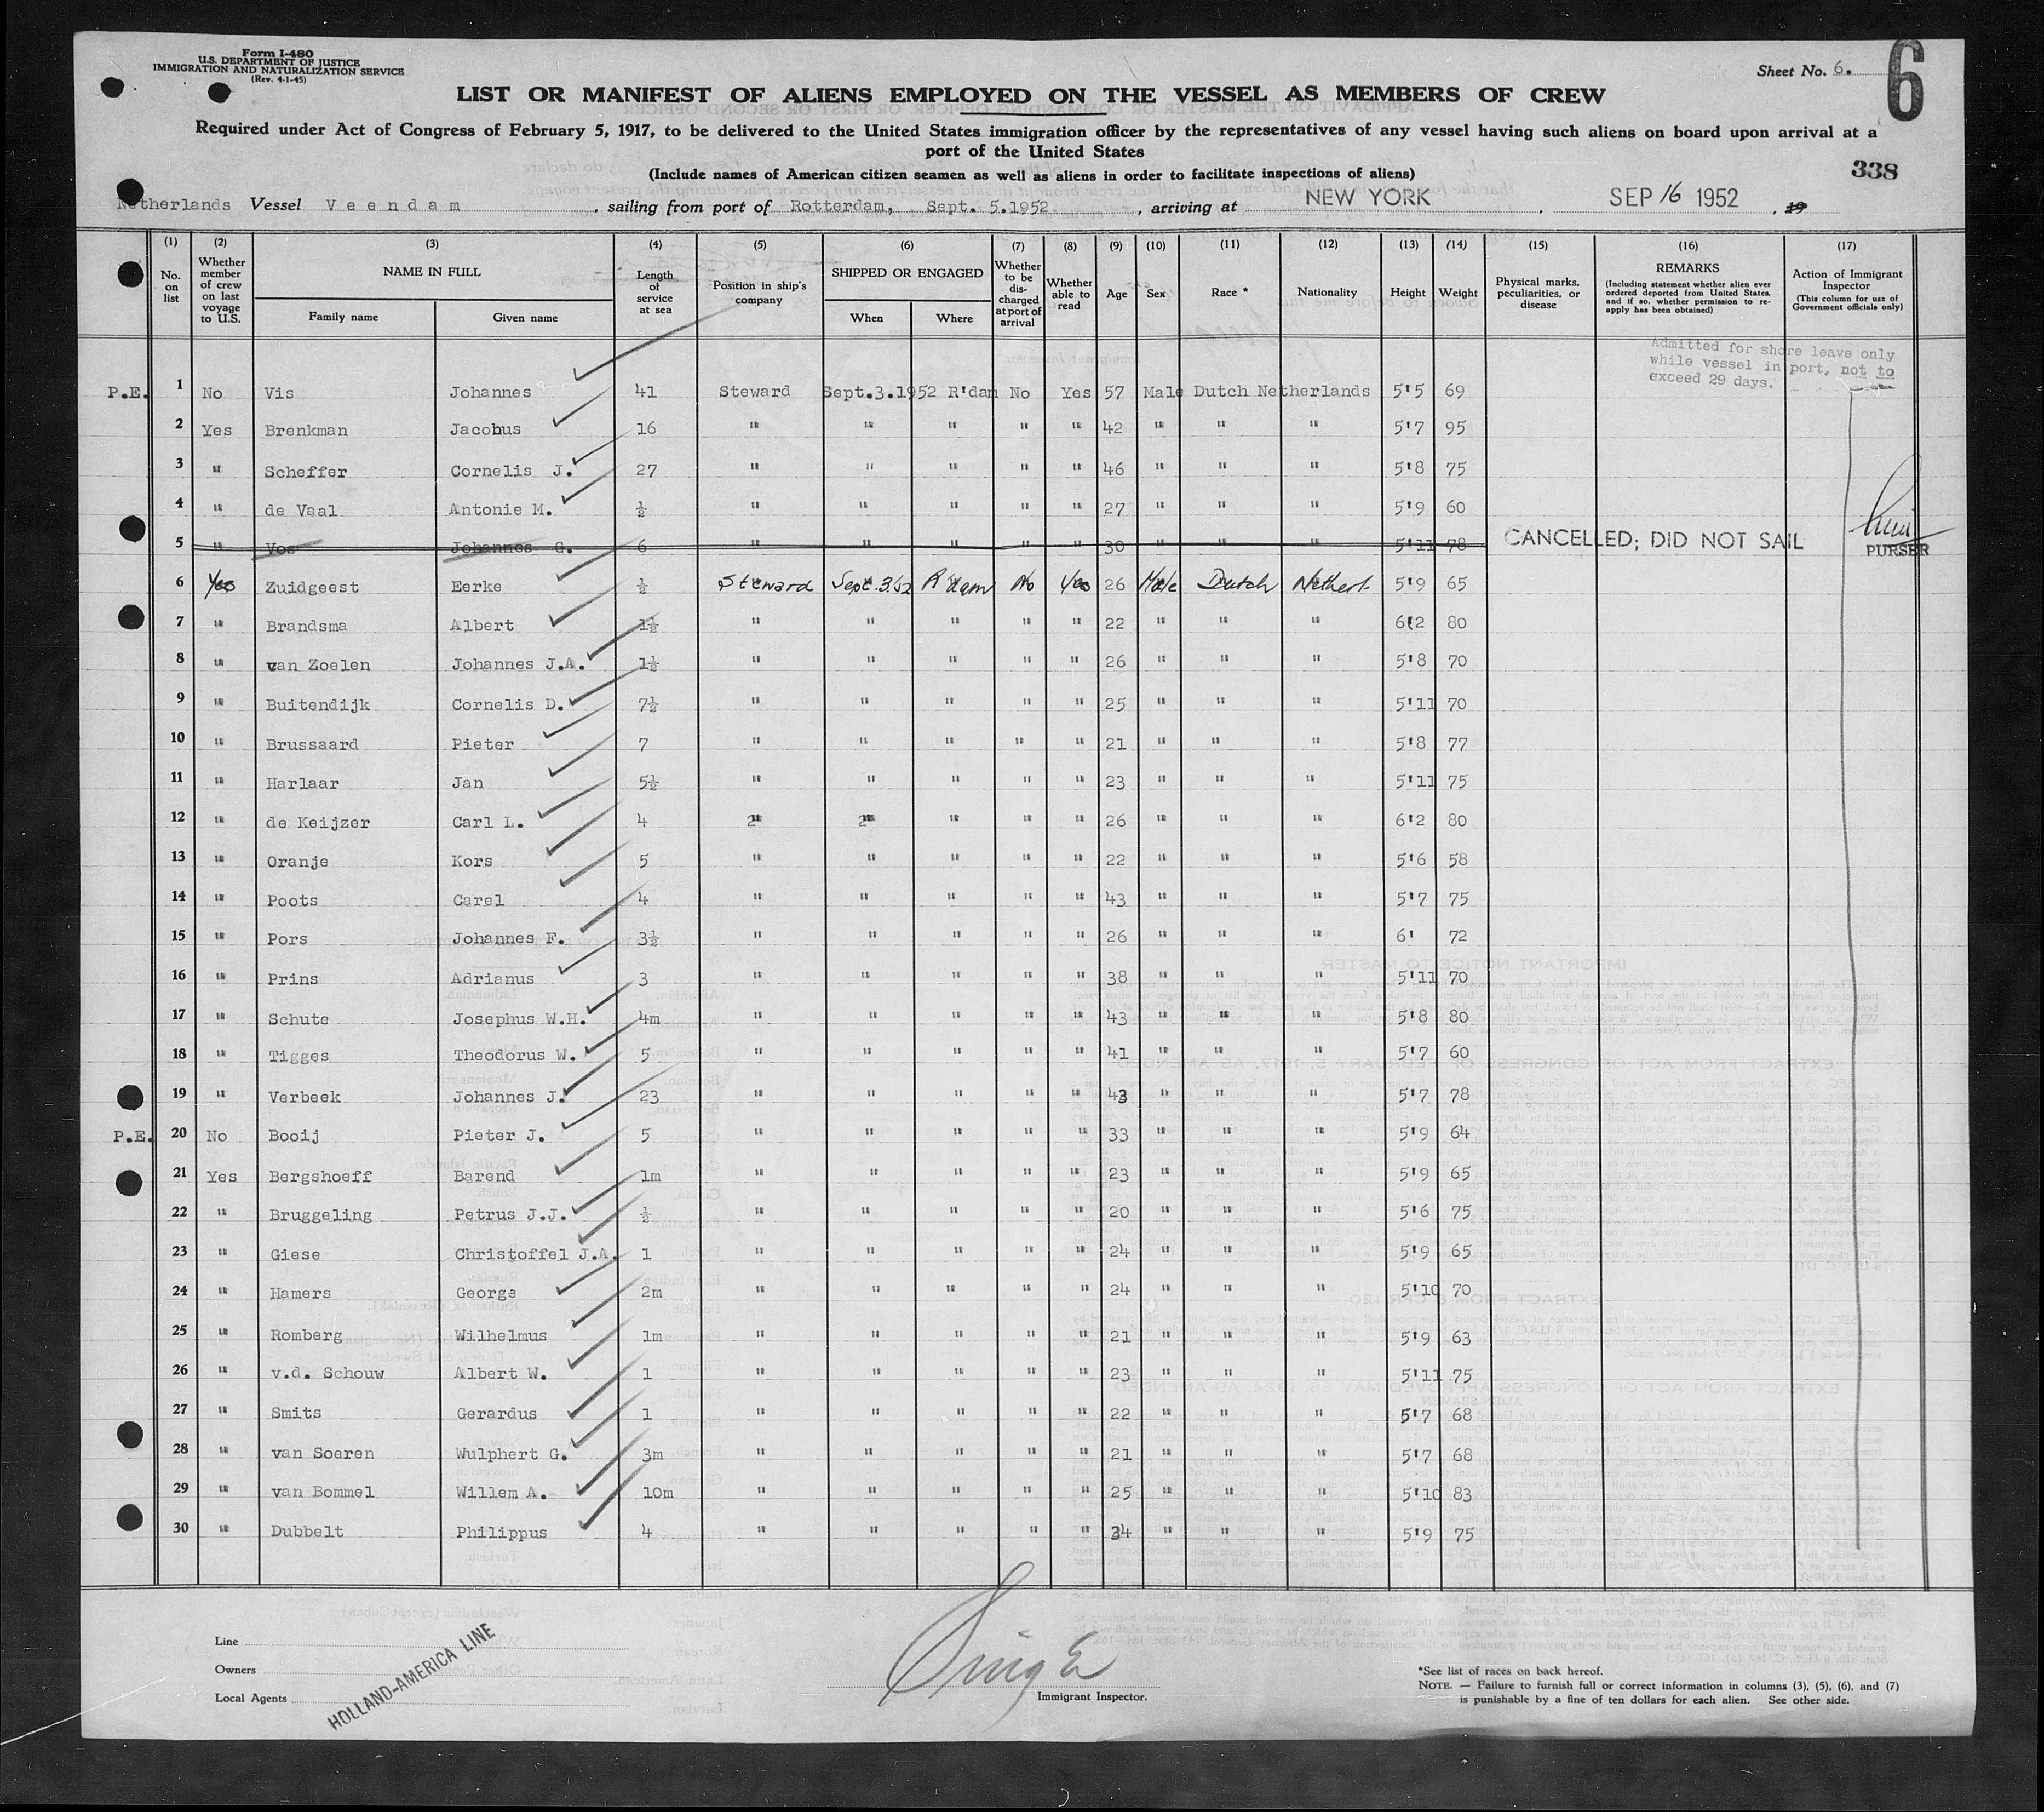 Form I-480
U.S. DEPARTMENT OF JUSTICE
IMMIGRATION AND NATURALIZATION SERVICE
(Rev. 4-1-45)
Sheet No. 6.
6
LIST OR MANIFEST OF ALIENS EMPLOYED ON THE VESSEL AS MEMBERS OF CREW
Required under Act of Congress of February 5, 1917, to be delivered to the United States immigration officer by the representatives of any vessel having such aliens on board upon arrival at a
port of the United States
(Include names of American citizen seamen as well as aliens in order to facilitate inspections of aliens)
338
Netherlands Vessel Veendam, sailing from port of Rotterdam, Sept. 5.1952, arriving at NEW YORK, SEP 16 1952, 19
(1) (2) (3) (4) (5) (6) (7) (8) (9) (10) (11) (12) (13) (14) (15) (16) (17)
No. on list
Whether member of crew on last voyage to U.S.
NAME IN FULL
Family name
Given name
Length of service at sea
Position in ship's company
SHIPPED OR ENGAGED
When
Where
Whether to be discharged at port of arrival
Whether able to read
Age
Sex
Race *
Nationality
Height
Weight
Physical marks, peculiarities, or disease
REMARKS
(Including statement whether alien ever ordered deported from United States, and if so, whether permission to re-apply has been obtained)
Action of Immigrant Inspector
(This column for use of Government officials only)
Admitted for shore leave only
while vessel in port, not to
exceed 29 days.
P.E. 1 No Vis Johannes 41 Steward Sept.3.1952 R'dam No Yes 57 Male Dutch Netherlands 5'5 69
2 Yes Brenkman Jacobus 16 " " " " " 42 " " " 5'7 95
3 " Scheffer Cornelis J. 27 " " " " " 46 " " " 5'8 75
4 " de Vaal Antonie M. ½ " " " " " 27 " " " 5'9 60
5 " Vos Johannes G. 6 " " " " " 30 " " " 5'11 78 CANCELLED; DID NOT SAIL PURSER
6 Yes Zuidgeest Eerke ½ Steward Sept.3.52 R'dam No Yes 26 Male Dutch Netherl. 5'9 65
7 " Brandsma Albert 1½ " " " " " 22 " " " 6'2 80
8 " van Zoelen Johannes J.A. 1½ " " " " " 26 " " " 5'8 70
9 " Buitendijk Cornelis D. 7½ " " " " " 25 " " " 5'11 70
10 " Brussaard Pieter 7 " " " " " 21 " " " 5'8 77
11 " Harlaar Jan 5½ " " " " " 23 " " " 5'11 75
12 " de Keijzer Carl L. 4 " " " " " 26 " " " 6'2 80
13 " Oranje Kors 5 " " " " " 22 " " " 5'6 58
14 " Poots Carel 4 " " " " " 43 " " " 5'7 75
15 " Pors Johannes F. 3½ " " " " " 26 " " " 6' 72
16 " Prins Adrianus 3 " " " " " 38 " " " 5'11 70
17 " Schute Josephus W.H. 4m " " " " " 43 " " " 5'8 80
18 " Tigges Theodorus W. 5 " " " " " 41 " " " 5'7 60
19 " Verbeek Johannes J. 23 " " " " " 43 " " " 5'7 78
P.E. 20 No Booij Pieter J. 5 " " " " " 33 " " " 5'9 64
21 Yes Bergshoeff Barend 1m " " " " " 23 " " " 5'9 65
22 " Bruggeling Petrus J.J. ½ " " " " " 20 " " " 5'6 75
23 " Giese Christoffel J.A. 1 " " " " " 24 " " " 5'9 65
24 " Hamers George 2m " " " " " 24 " " " 5'10 70
25 " Romberg Wilhelmus 1m " " " " " 21 " " " 5'9 63
26 " v.d. Schouw Albert W. 1 " " " " " 23 " " " 5'11 75
27 " Smits Gerardus 1 " " " " " 22 " " " 5'7 68
28 " van Soeren Wulphert G. 3m " " " " " 21 " " " 5'7 68
29 " van Bommel Willem A. 10m " " " " " 25 " " " 5'10 83
30 " Dubbelt Philippus 4 " " " " " 34 " " " 5'9 75
Line
Owners
Local Agents
HOLLAND-AMERICA LINE
Immigrant Inspector.
*See list of races on back hereof.
NOTE. — Failure to furnish full or correct information in columns (3), (5), (6), and (7)
is punishable by a fine of ten dollars for each alien. See other side.